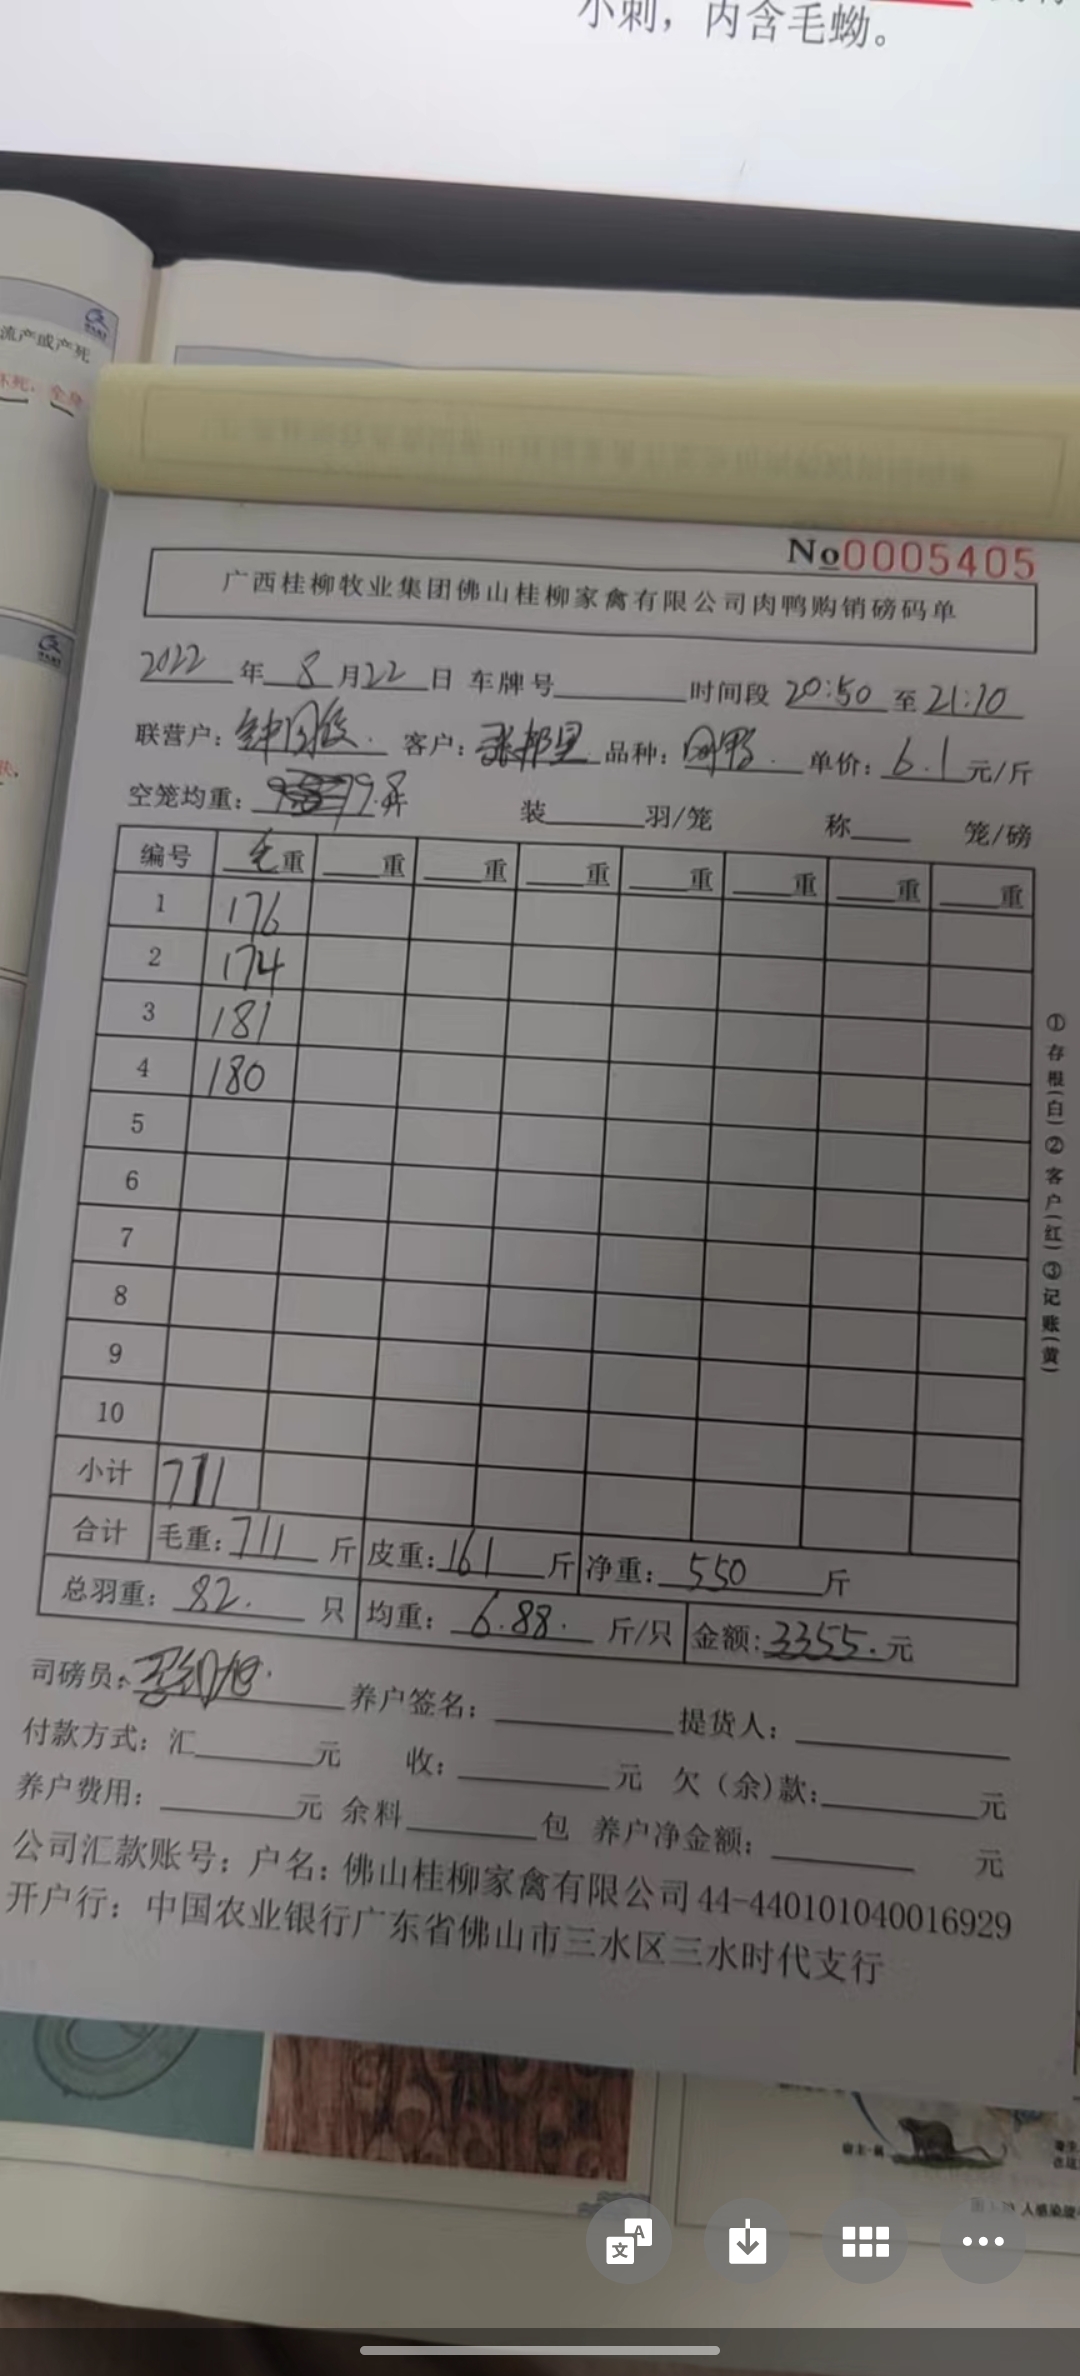 小刺，内含毛蚴。
流产或产死
坏死，全身
No0005405
广西桂柳牧业集团佛山桂柳家禽有限公司肉鸭购销磅码单
2022年8月22日 车牌号 时间段 20:50 至 21:10
联营户： 客户： 品种：肉鸭. 单价：6.1元/斤
空笼均重： 装 羽/笼 称 笼/磅
编号 毛重 重 重 重 重 重 重 重
1 176
2 174
3 181
4 180
5
6
7
8
9
10
小计 711
合计 毛重：711斤 皮重：161斤 净重：550斤
总羽重：82.只 均重：6.88.斤/只 金额：3355.元
司磅员： 养户签名： 提货人：
付款方式：汇 元 收： 元 欠（余）款： 元
养户费用： 元 余料 包 养户净金额： 元
公司汇款账号：户名：佛山桂柳家禽有限公司44-440101040016929
开户行：中国农业银行广东省佛山市三水区三水时代支行
①存根(白)②客户(红)③记账(黄)